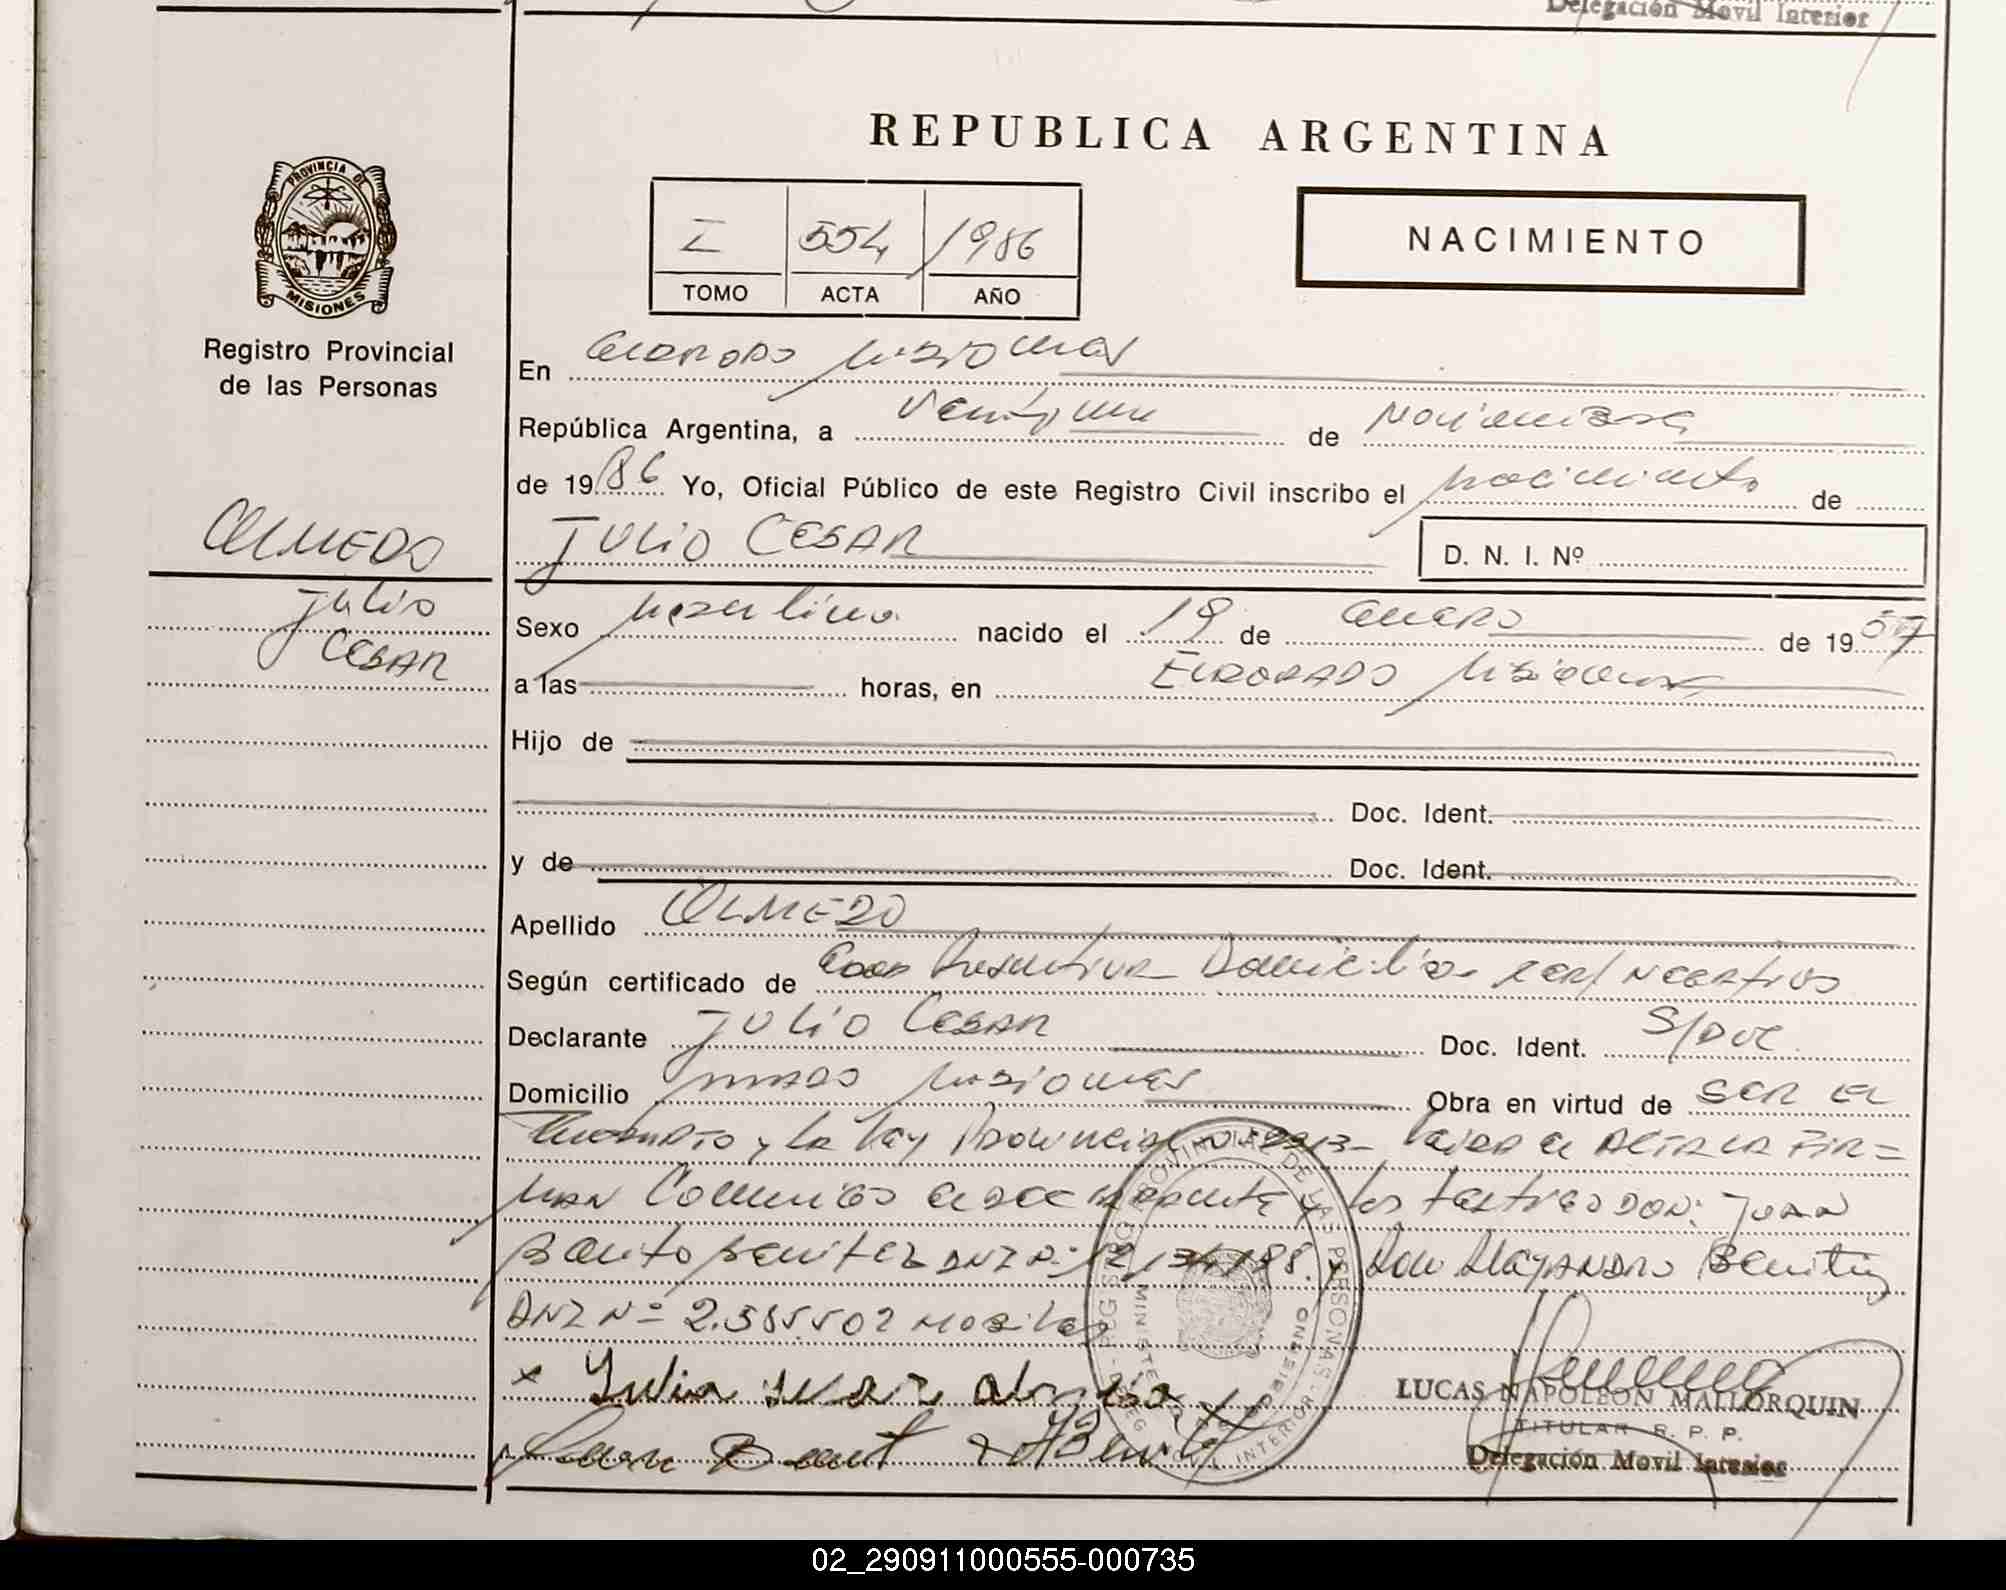 Delegación Movil Interior
REPUBLICA ARGENTINA
PROVINCIA DE
MISIONES
Registro Provincial
de las Personas
I 554 1986
TOMO ACTA AÑO
NACIMIENTO
En Eldorado Misiones
República Argentina, a Veintiun de Noviembre
de 1986 Yo, Oficial Público de este Registro Civil inscribo el nacimiento de
JULIO CESAR
D. N. I. Nº
OLMEDO
Julio
CESAR
Sexo Masculino nacido el 19 de Enero de 1957
a las horas, en ELDORADO Misiones
Hijo de
Doc. Ident.
y de Doc. Ident.
Apellido OLMEDO
Según certificado de Presuntiva Domicilio NEGATIVO
Declarante JULIO CESAR Doc. Ident. S/DOC
Domicilio Misiones Obra en virtud de SER EL
y la Ley Provincial Leida el ACTA LA FIR=
MAN Conmigo el declarante y los testigos DON: JUAN
Benito BENITEZ DNI Nº y Don Alejandro Benitez
DNI Nº 2.385.502
x Julio
Juan
REGISTRO PROVINCIAL DE LAS PERSONAS
MINISTERIO DE GOBIERNO
LUCAS NAPOLEON MALLORQUIN
TITULAR R. P. P.
Delegación Movil Interior
02_290911000555-000735